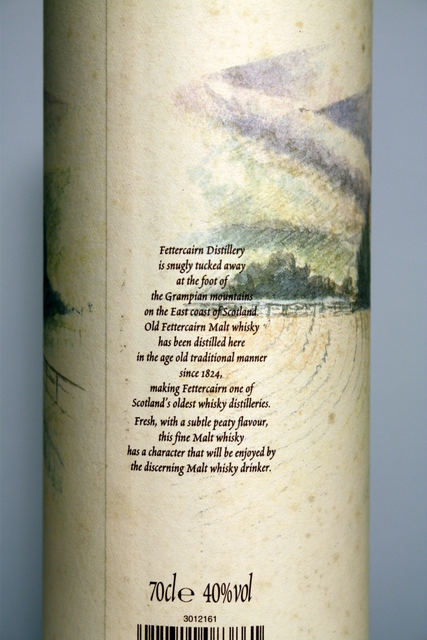 Fettercairn Distillery
is snugly tucked away
at the foot of
the Grampian mountains
on the East coast of Scotland.
Old Fettercairn Malt whisky
has been distilled here
in the age old traditional manner
since 1824,
making Fettercairn one of
Scotland's oldest whisky distilleries.
Fresh, with a subtle peaty flavour,
this fine Malt whisky
has a character that will be enjoyed by
the discerning Malt whisky drinker.
70cl℮ 40%vol
3012161